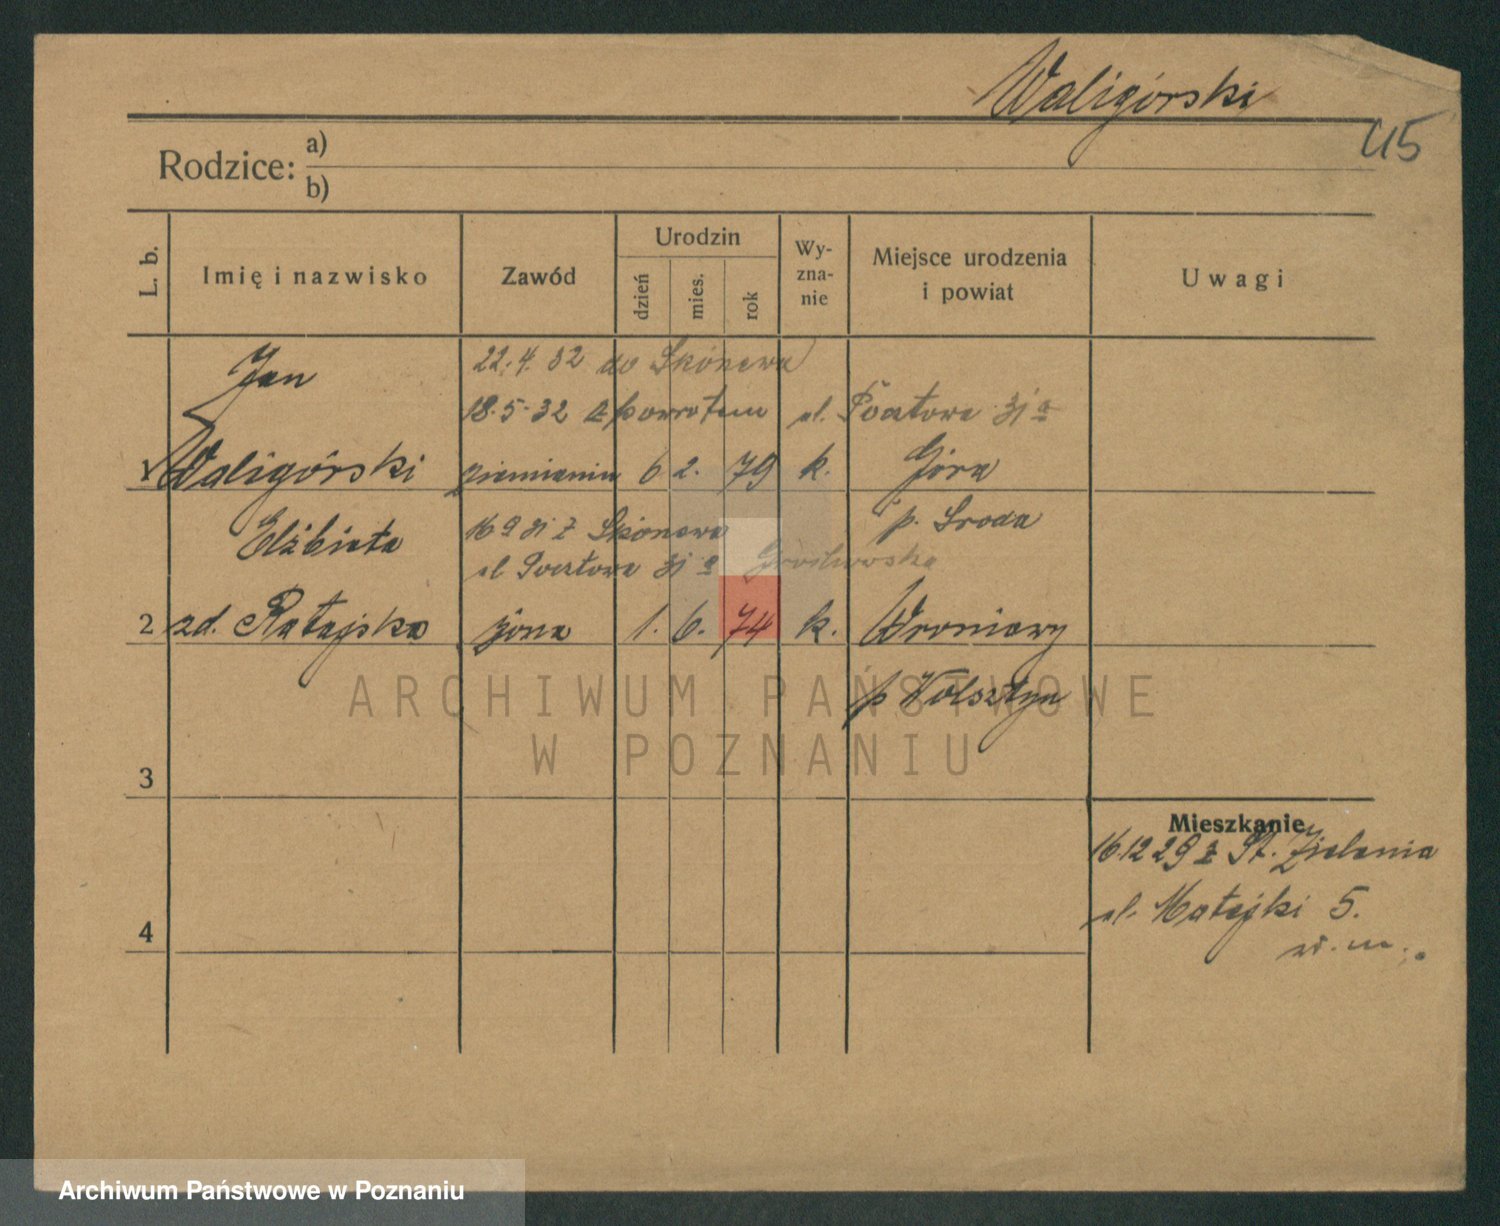 Waligórski
45
Rodzice: a)
b)
L. b.
Imię i nazwisko
Zawód
Urodzin
dzień
mies.
rok
Wy-
zna-
nie
Miejsce urodzenia
i powiat
Uwagi
22.4.32 do Skónewa
Jan
18.5.32 z powrotem ul. Pocztowa 31 a
1 Waligórski ziemianin 6 2. 79 k. Góra
p. Sroda
Elżbieta 16 9 31 z Skónewa
ul Pocztowa 31 a
2 zd. Ratajska żona 1. 6. 74 k. Wroniawy
p Wolsztyn
ARCHIWUM PAŃSTWOWE
W POZNANIU
3
Mieszkanie
16.12 29 z St. Zielenia
ul. Matejki 5.
w. m.
4
Archiwum Państwowe w Poznaniu